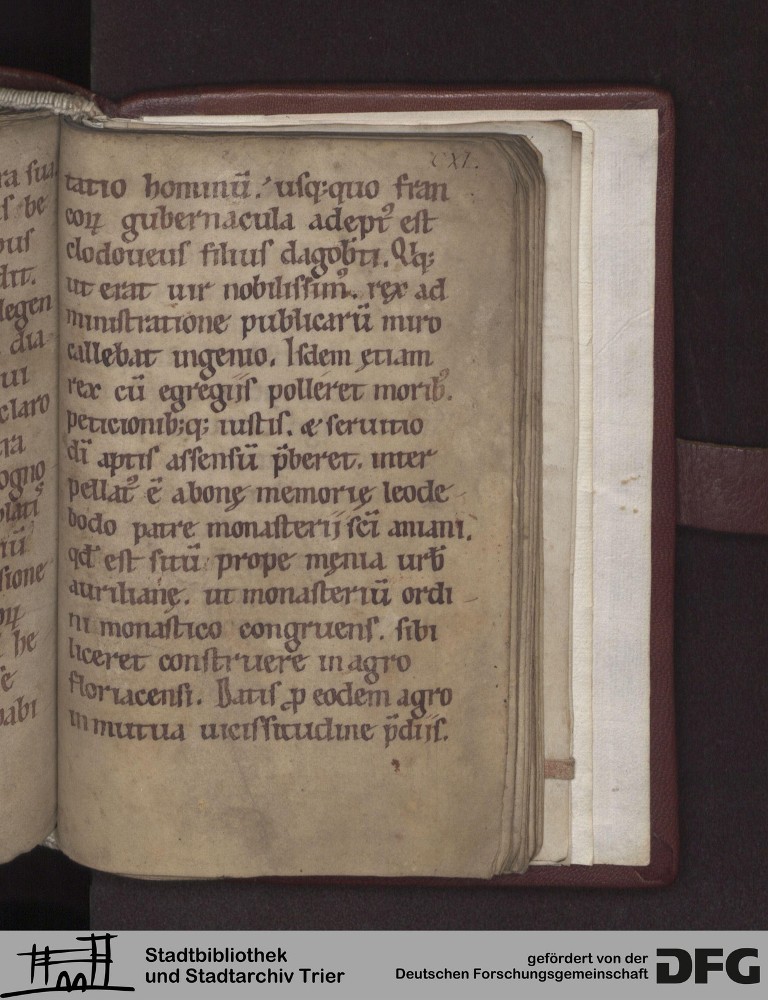 CXL.
tatio hominū. usq;quo fran
coꝝ gubernacula adept᾽ est
clodoueus filius dagob̄ti. Qͥq;
ut erat uir nobilissim᾽. rex ad
ministratione publicarū miro
callebat ingenio. Isdem ętiam
rex cū egregijs polleret morib᾽.
peticionib;q; iustis. & seruitio
dī aptis assensū p̄beret. inter
pellat᾽ ē abonę memorię leode
bodo patre monasterij sc̄i aniani.
qd̄ est sitū prope męnia urb̄
aurilianę. ut monasteriū ordi
ni monastico congruens. sibi
liceret construere inagro
floriacensi. Datis ꝓ eodem agro
inmutua uicissitudine p̄diis.
ra sua
s be
bus
dit.
legen
dia
ui
claro
tra
ogno
plati᾽
nū
sione
oꝝ
he
se
babi
Stadtbibliothek
und Stadtarchiv Trier
gefördert von der
Deutschen Forschungsgemeinschaft
DFG